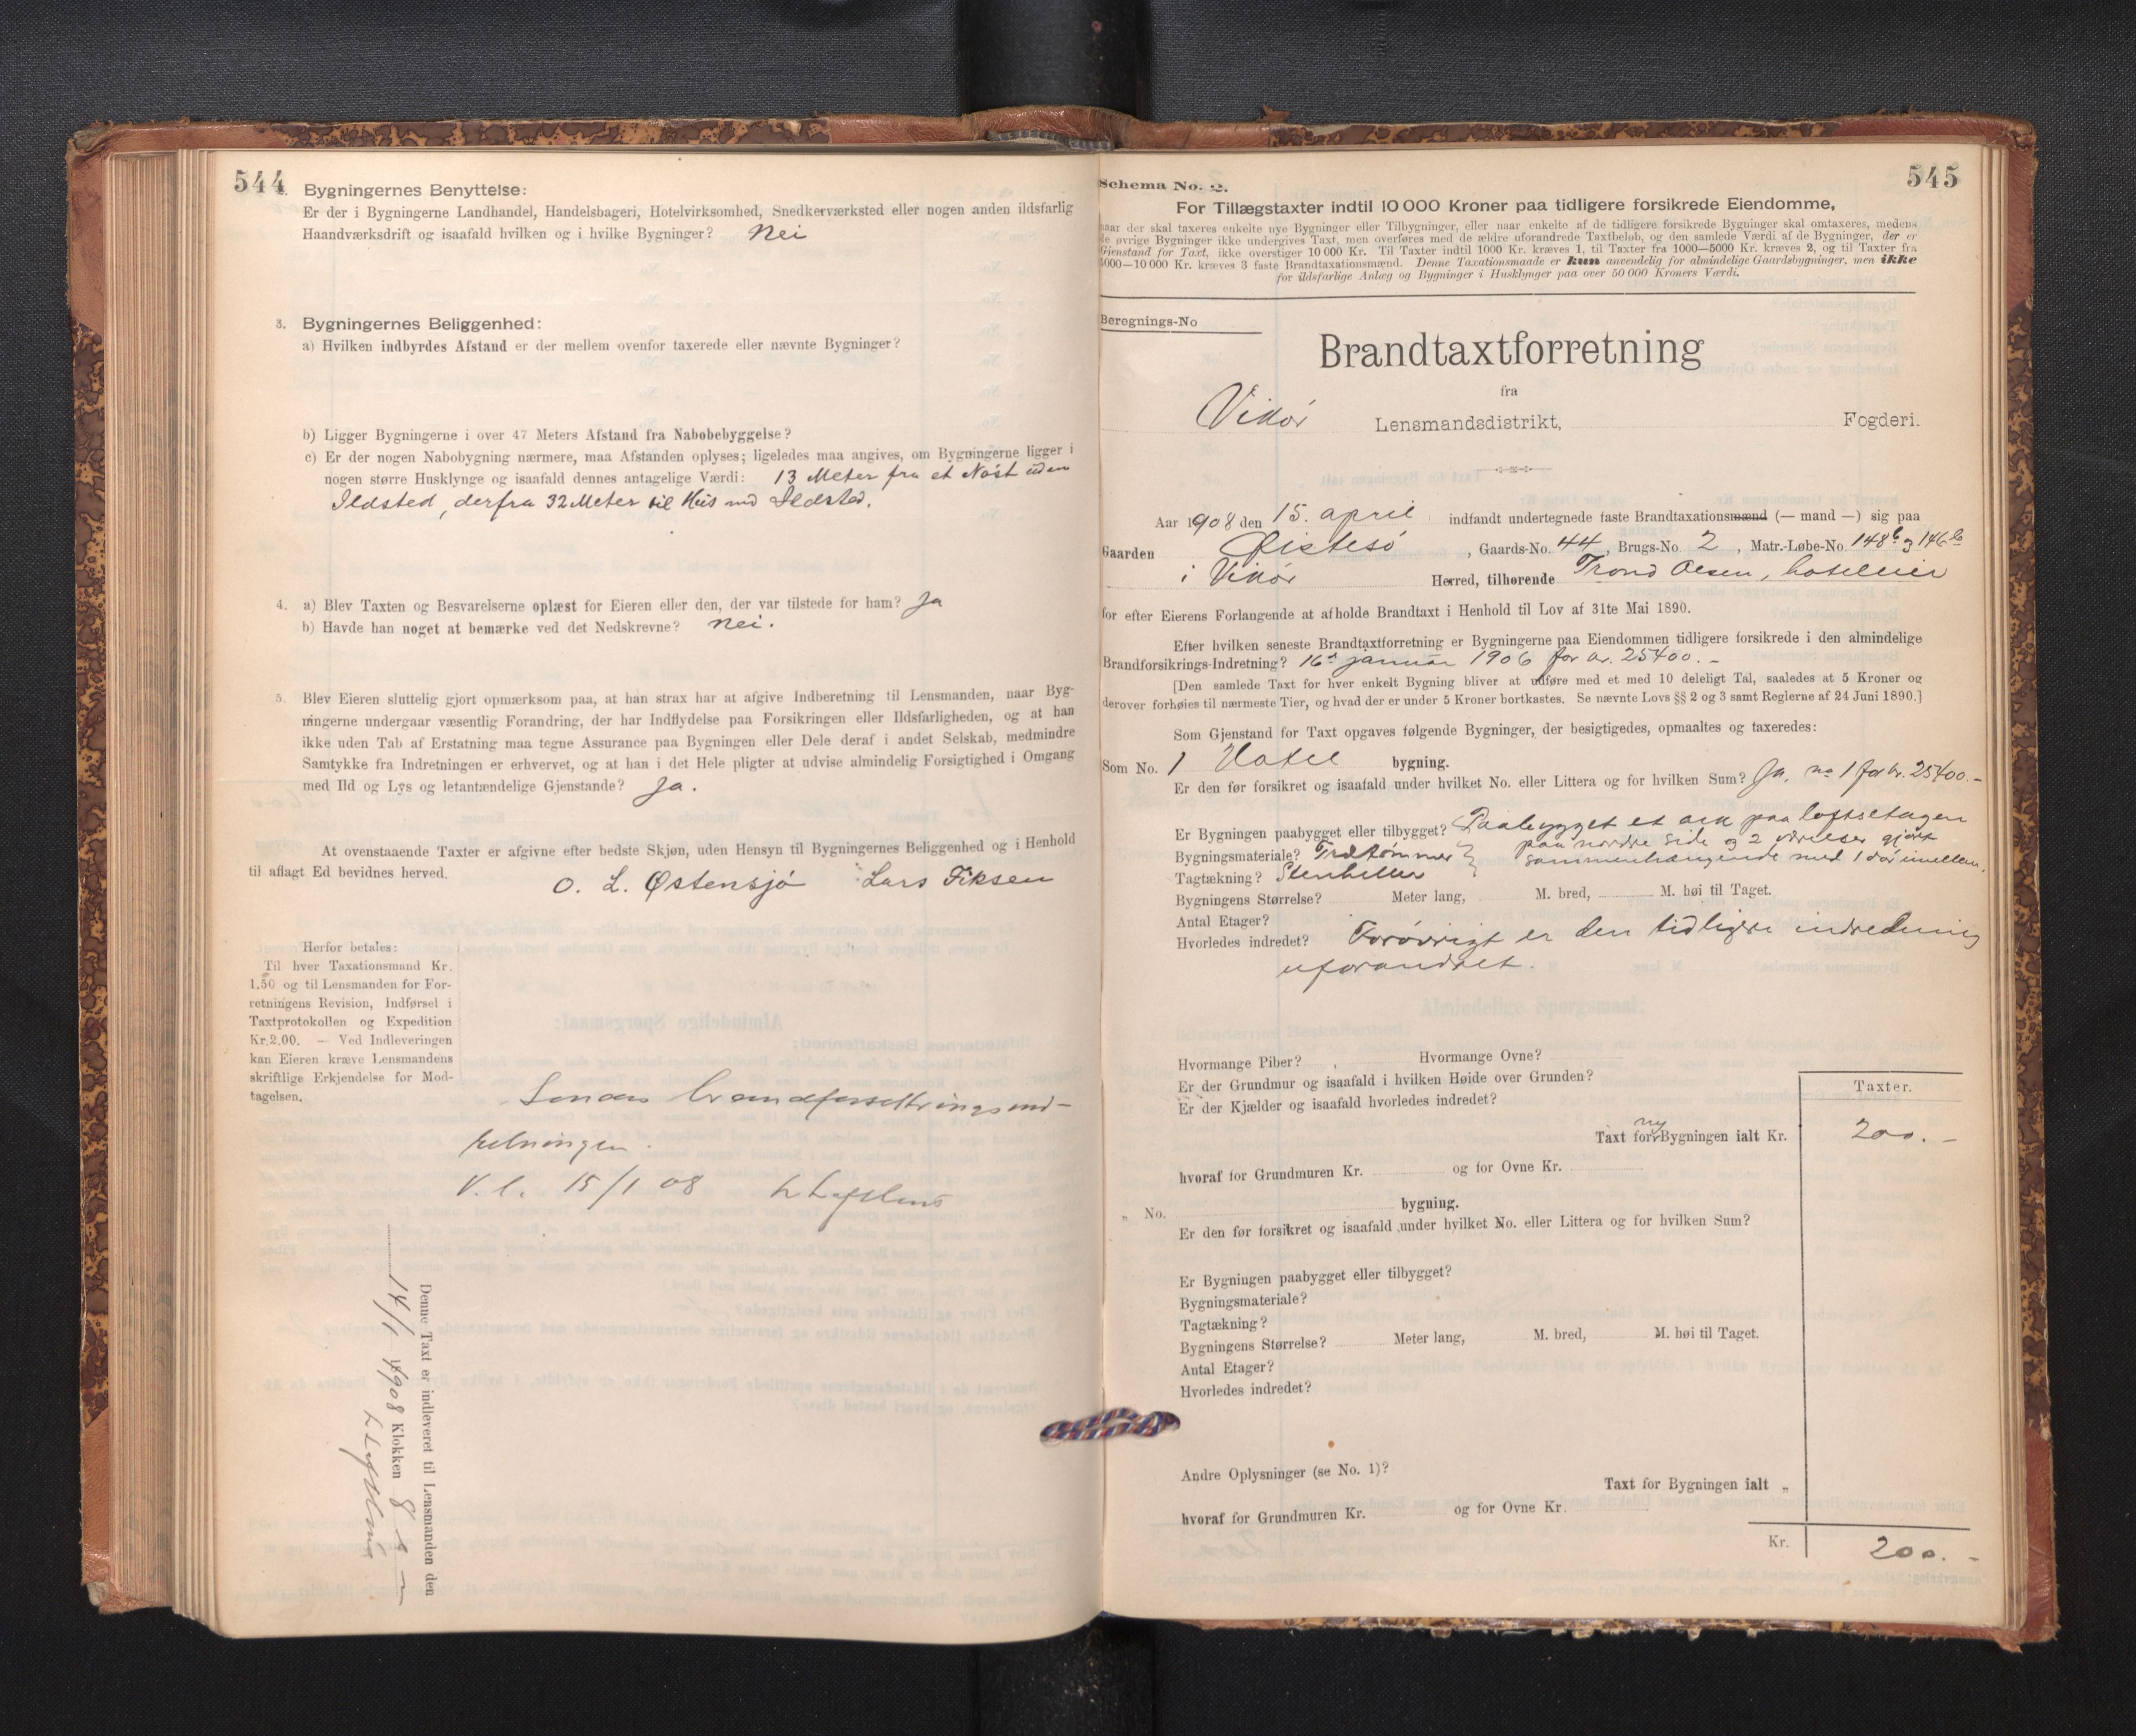 544
2. Bygningernes Benyttelse:
Er der i Bygningerne Landhandel, Handelsbageri, Hotelvirksomhed, Snedkerværksted eller nogen anden ildsfarlig
Haandværksdrift og isaafald hvilken og i hvilke Bygninger? Nei
3. Bygningernes Beliggenhed:
a) Hvilken indbyrdes Afstand er der mellem ovenfor taxerede eller nævnte Bygninger?
b) Ligger Bygningerne i over 47 Meters Afstand fra Nabobebyggelse?
c) Er der nogen Nabobygning nærmere, maa Afstanden oplyses; ligeledes maa angives, om Bygningerne ligger i
nogen større Husklynge og isaafald dennes antagelige Værdi: 13 Meter fra et Nøst uden
Ildsted, derfra 32 Meter til Hus med Ildsted.
4. a) Blev Taxten og Besvarelserne oplæst for Eieren eller den, der var tilstede for ham? Ja
b) Havde han noget at bemærke ved det Nedskrevne? Nei.
5. Blev Eieren sluttelig gjort opmærksom paa, at han strax har at afgive Indberetning til Lensmanden, naar Byg-
ningerne undergaar væsentlig Forandring, der har Indflydelse paa Forsikringen eller Ildsfarligheden, og at han
ikke uden Tab af Erstatning maa tegne Assurance paa Bygningen eller Dele deraf i andet Selskab, medmindre
Samtykke fra Indretningen er erhvervet, og at han i det Hele pligter at udvise almindelig Forsigtighed i Omgang
med Ild og Lys og letantændelige Gjenstande? Ja.
At ovenstaaende Taxter er afgivne efter bedste Skjøn, uden Hensyn til Bygningernes Beliggenhed og i Henhold
til aflagt Ed bevidnes herved.
O. L. Østensjø Lars Fiksen
Herfor betales:
Til hver Taxationsmand Kr.
1.50 og til Lensmanden for For-
retningens Revision, Indførsel i
Taxtprotokollen og Expedition
Kr. 2.00. — Ved Indleveringen
kan Eieren kræve Lensmandens
skriftlige Erkjendelse for Mod-
tagelsen.
Sendes brandforsikringsind-
retningen.
V. l. 15/1 08
Denne Taxt er indleveret til Lensmanden den
14/1 1908 Klokken 8
545
Schema No. 2.
For Tillægstaxter indtil 10 000 Kroner paa tidligere forsikrede Eiendomme,
naar der skal taxeres enkelte nye Bygninger eller Tilbygninger, eller naar enkelte af de tidligere forsikrede Bygninger skal omtaxeres, medens
de øvrige Bygninger ikke undergives Taxt, men overføres med de ældre uforandrede Taxtbeløb, og den samlede Værdi af de Bygninger, der er
Gjenstand for Taxt, ikke overstiger 10 000 Kr. Til Taxter indtil 1000 Kr. kræves 1, til Taxter fra 1000—5000 Kr. kræves 2, og til Taxter fra
5000—10 000 Kr. kræves 3 faste Brandtaxationsmænd. Denne Taxationsmaade er kun anvendelig for almindelige Gaardsbygninger, men ikke
for ildsfarlige Anlæg og Bygninger i Husklynger paa over 50 000 Kroners Værdi.
Beregnings-No
Brandtaxtforretning
fra
Vikør Lensmandsdistrikt, Fogderi.
Aar 1908 den 15. april indfandt undertegnede faste Brandtaxationsmænd (— mand —) sig paa
Gaarden Øistesø, Gaards-No. 44, Brugs-No. 2, Matr.-Løbe-No. 148b og 146b
i Vikør Herred, tilhørende Trond Olsen, hoteleier
for efter Eierens Forlangende at afholde Brandtaxt i Henhold til Lov af 31te Mai 1890.
Efter hvilken seneste Brandtaxtforretning er Bygningerne paa Eiendommen tidligere forsikrede i den almindelige
Brandforsikrings-Indretning? 16de januar 1906 for kr. 25400.-
[Den samlede Taxt for hver enkelt Bygning bliver at udføre med et med 10 deleligt Tal, saaledes at 5 Kroner og
derover forhøies til nærmeste Tier, og hvad der er under 5 Kroner bortkastes. Se nævnte Lovs §§ 2 og 3 samt Reglerne af 24 Juni 1890.]
Som Gjenstand for Taxt opgaves følgende Bygninger, der besigtigedes, opmaaltes og taxeredes:
Som No. 1 Hotel bygning.
Er den før forsikret og isaafald under hvilket No. eller Littera og for hvilken Sum? Ja, no 1 for kr. 25400.-
Er Bygningen paabygget eller tilbygget? Paabygget et ark paa loftsetagen
paa nordre side og 2 værelser gjort
Bygningsmateriale? Trætømmer sammenhængende med 1 dør imellem.
Tagtækning? Stenheller
Bygningens Størrelse? Meter lang, M. bred, M. høi til Taget.
Antal Etager?
Hvorledes indredet? Forøvrigt er den tidligere indredning
uforandret.
Hvormange Piber? Hvormange Ovne?
Er der Grundmur og isaafald i hvilken Høide over Grunden?
Er der Kjælder og isaafald hvorledes indredet?
Taxter.
Taxt for ny Bygningen ialt Kr. 200.-
hvoraf for Grundmuren Kr. og for Ovne Kr.
„ No. bygning.
Er den før forsikret og isaafald under hvilket No. eller Littera og for hvilken Sum?
Er Bygningen paabygget eller tilbygget?
Bygningsmateriale?
Tagtækning?
Bygningens Størrelse? Meter lang, M. bred, M. høi til Taget.
Antal Etager?
Hvorledes indredet?
Andre Oplysninger (se No. 1)?
Taxt for Bygningen ialt „
hvoraf for Grundmuren Kr. og for Ovne Kr.
Kr. 200.-